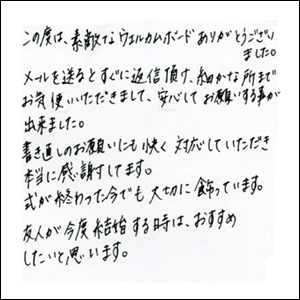 この度は、素敵なウェルカムボードありがとうござい
ました。
メールを送るとすぐに返信頂け、細かな所まで
お気使いいただきまして、安心してお願いする事が
出来ました。
書き直しのお願いにも快く対応していただき
本当に感謝してます。
式が終わった今でも大切に飾っています。
友人が今度結婚する時は、おすすめ
したいと思います。